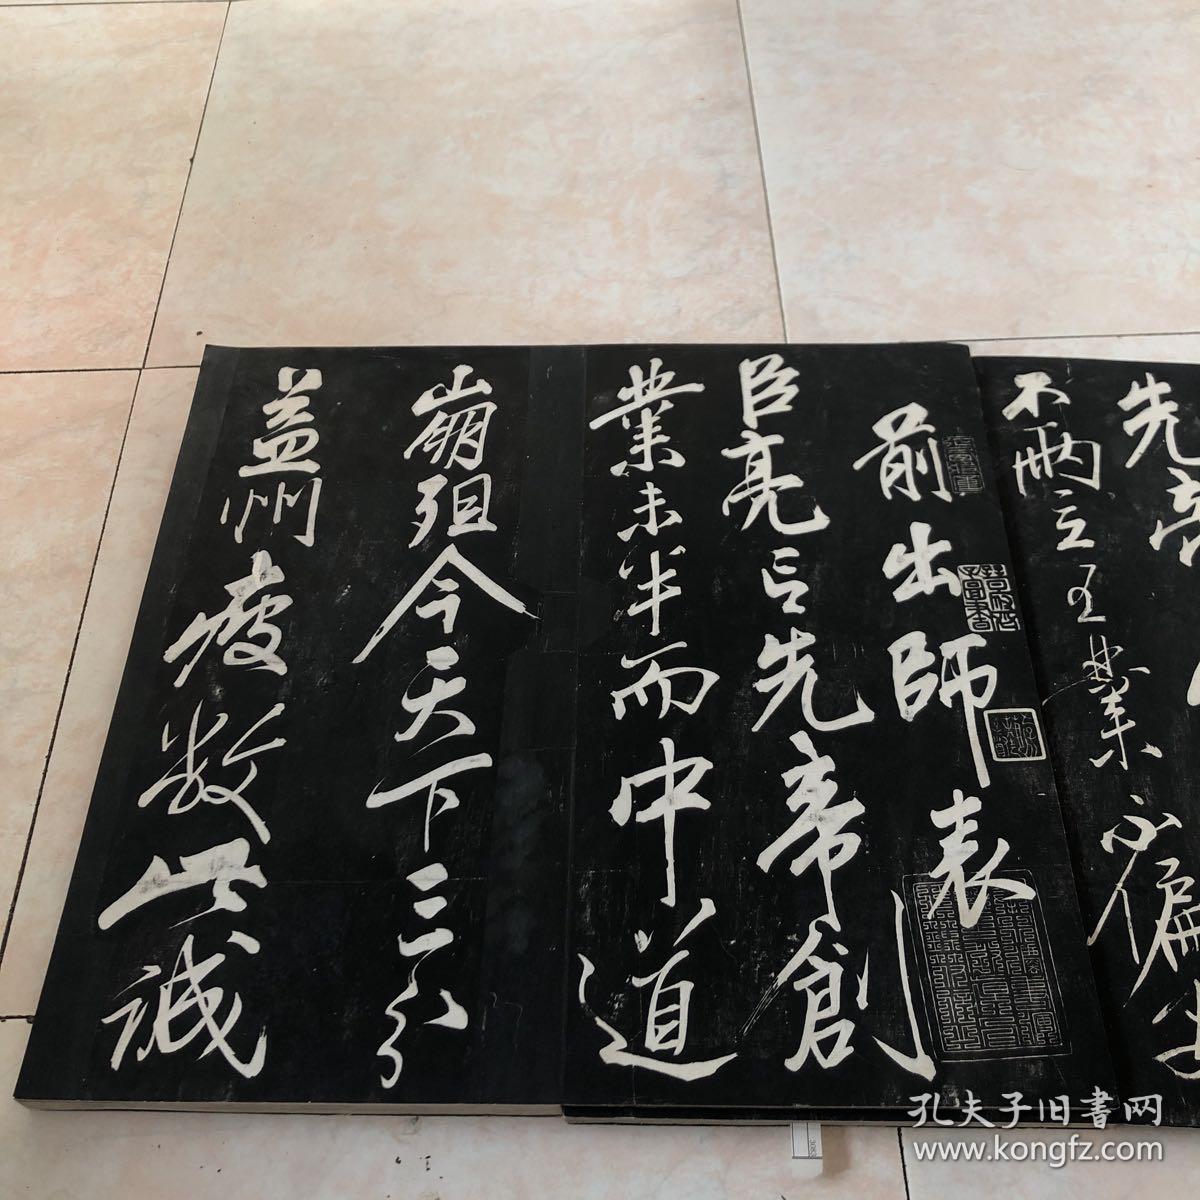 先帝
不兩立王業不偏安
前出師表
臣亮言先帝創
業未半而中道
崩殂今天下三分
益州疲敝此誠
孔夫子旧書网
www.kongfz.com